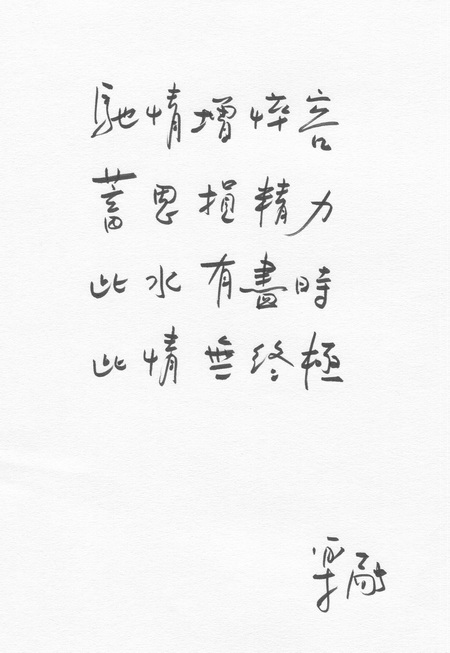 馳情增悴容
蓄思損精力
此水有盡時
此情無終極